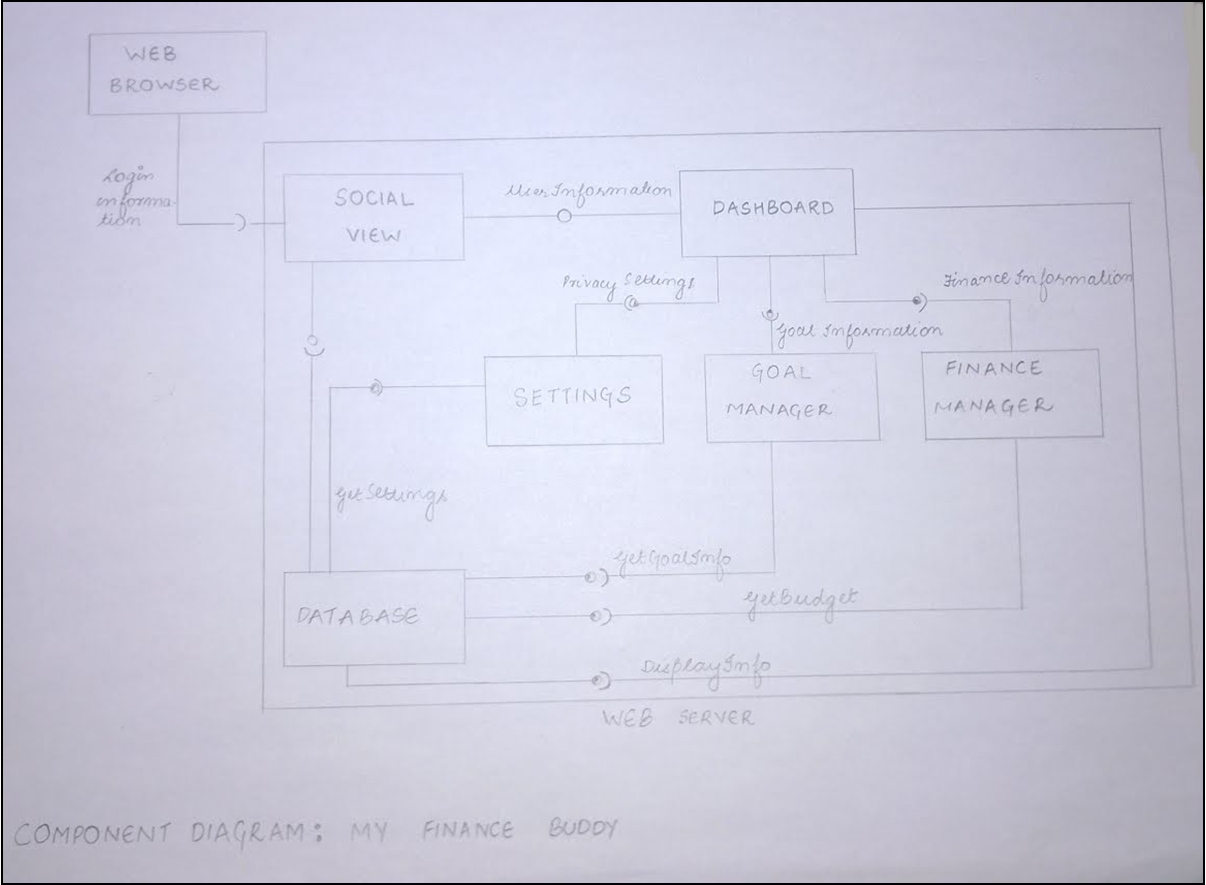 WEB
BROWSER
Login
informa-
tion
SOCIAL
VIEW
User Information
DASHBOARD
Privacy Settings
Finance Information
Goal Information
SETTINGS
GOAL
MANAGER
FINANCE
MANAGER
GetSettings
GetGoalInfo
GetBudget
DATABASE
DisplayInfo
WEB SERVER
COMPONENT DIAGRAM: MY FINANCE BUDDY